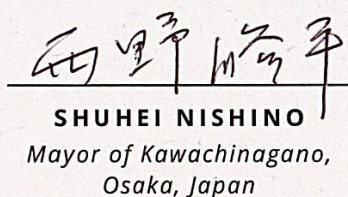 西野修平
SHUHEI NISHINO
Mayor of Kawachinagano,
Osaka, Japan